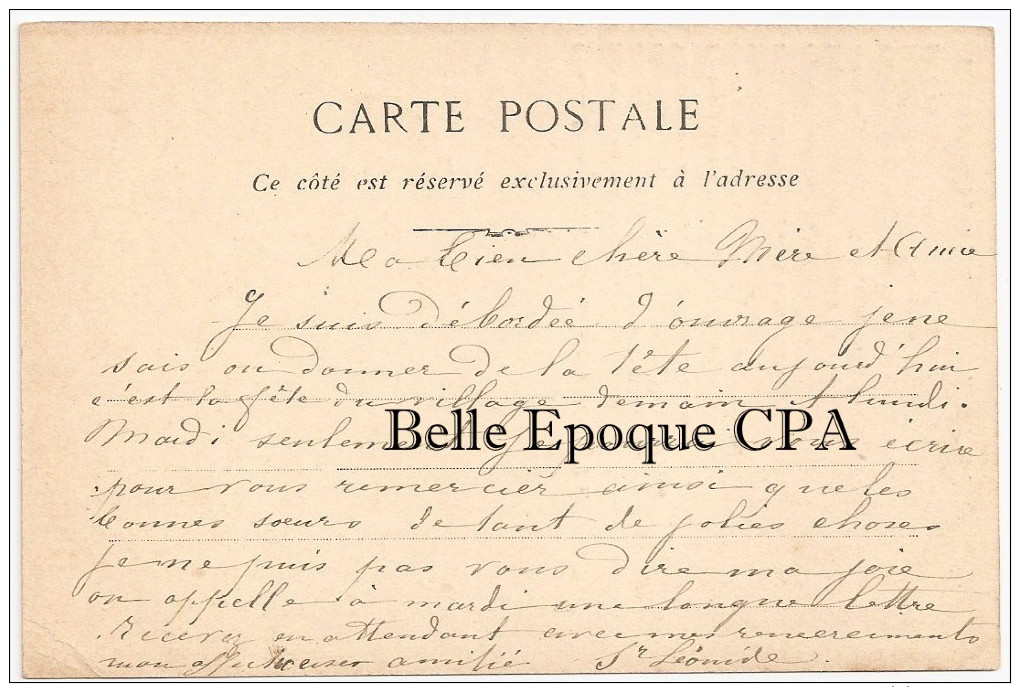 CARTE POSTALE
Ce côté est réservé exclusivement à l'adresse
Ma bien chère Mère et Amie
Je suis débordée d'ouvrage je ne
sais ou donner de la tête aujourd'hui
c'est la fête du village demain et lundi.
Belle Epoque CPA
Mardi seulement je pourrai vous écrire
pour vous remercier ainsi que les
bonnes sœurs de tant de jolies choses
je ne puis pas vous dire ma joie
on appelle à mardi une longue lettre
recevez en attendant avec mes remerciements
mon amitié Sr Léonide.